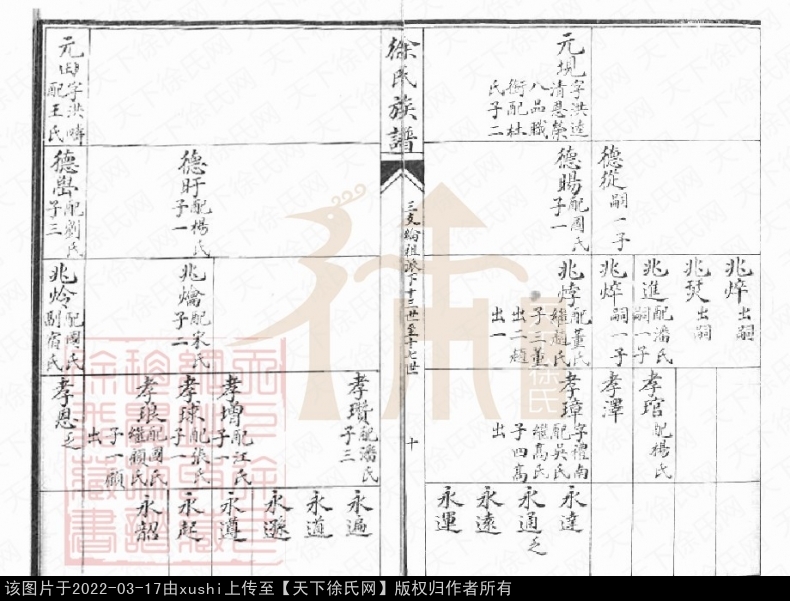 徐氏族譜
三支綸祖派下十三世至十七世
十
元
字洪逵
清恩榮
八品職
銜配杜
氏子二
德從
嗣一子
德賜
配國氏
子一
兆焠
出嗣
兆焚
出嗣
兆進
配潘氏
嗣一子
兆焠
嗣一子
兆焞
配董氏
繼趙氏
子三董
出二趙
出一
孝琯
配楊氏
孝澤
孝璋
字禮南
配吳氏
繼高氏
子四高
出
永達
永通
乏
永遠
永運
元
字洪疇
配王氏
德盱
配楊氏
子一
德嶨
配劉氏
子三
兆爚
配宋氏
子二
兆炩
配國氏
副宿氏
孝瓚
配潘氏
子三
孝增
配江氏
子一
孝球
配張氏
子一
孝琅
配國氏
繼顧氏
子一顧
出
孝恩
乏
永遍
永道
永遜
永遵
永起
永韶
徐氏
天下徐氏网
该图片于2022-03-17由xushi上传至【天下徐氏网】版权归作者所有